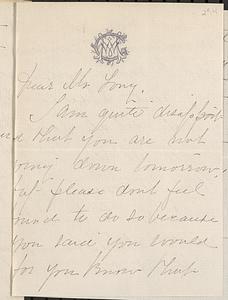 Dear Mr Long,
I am quite disappoint-
ed that you are not
going down tomorrow,
but please dont feel
bound to do so because
you said you would
for you know that